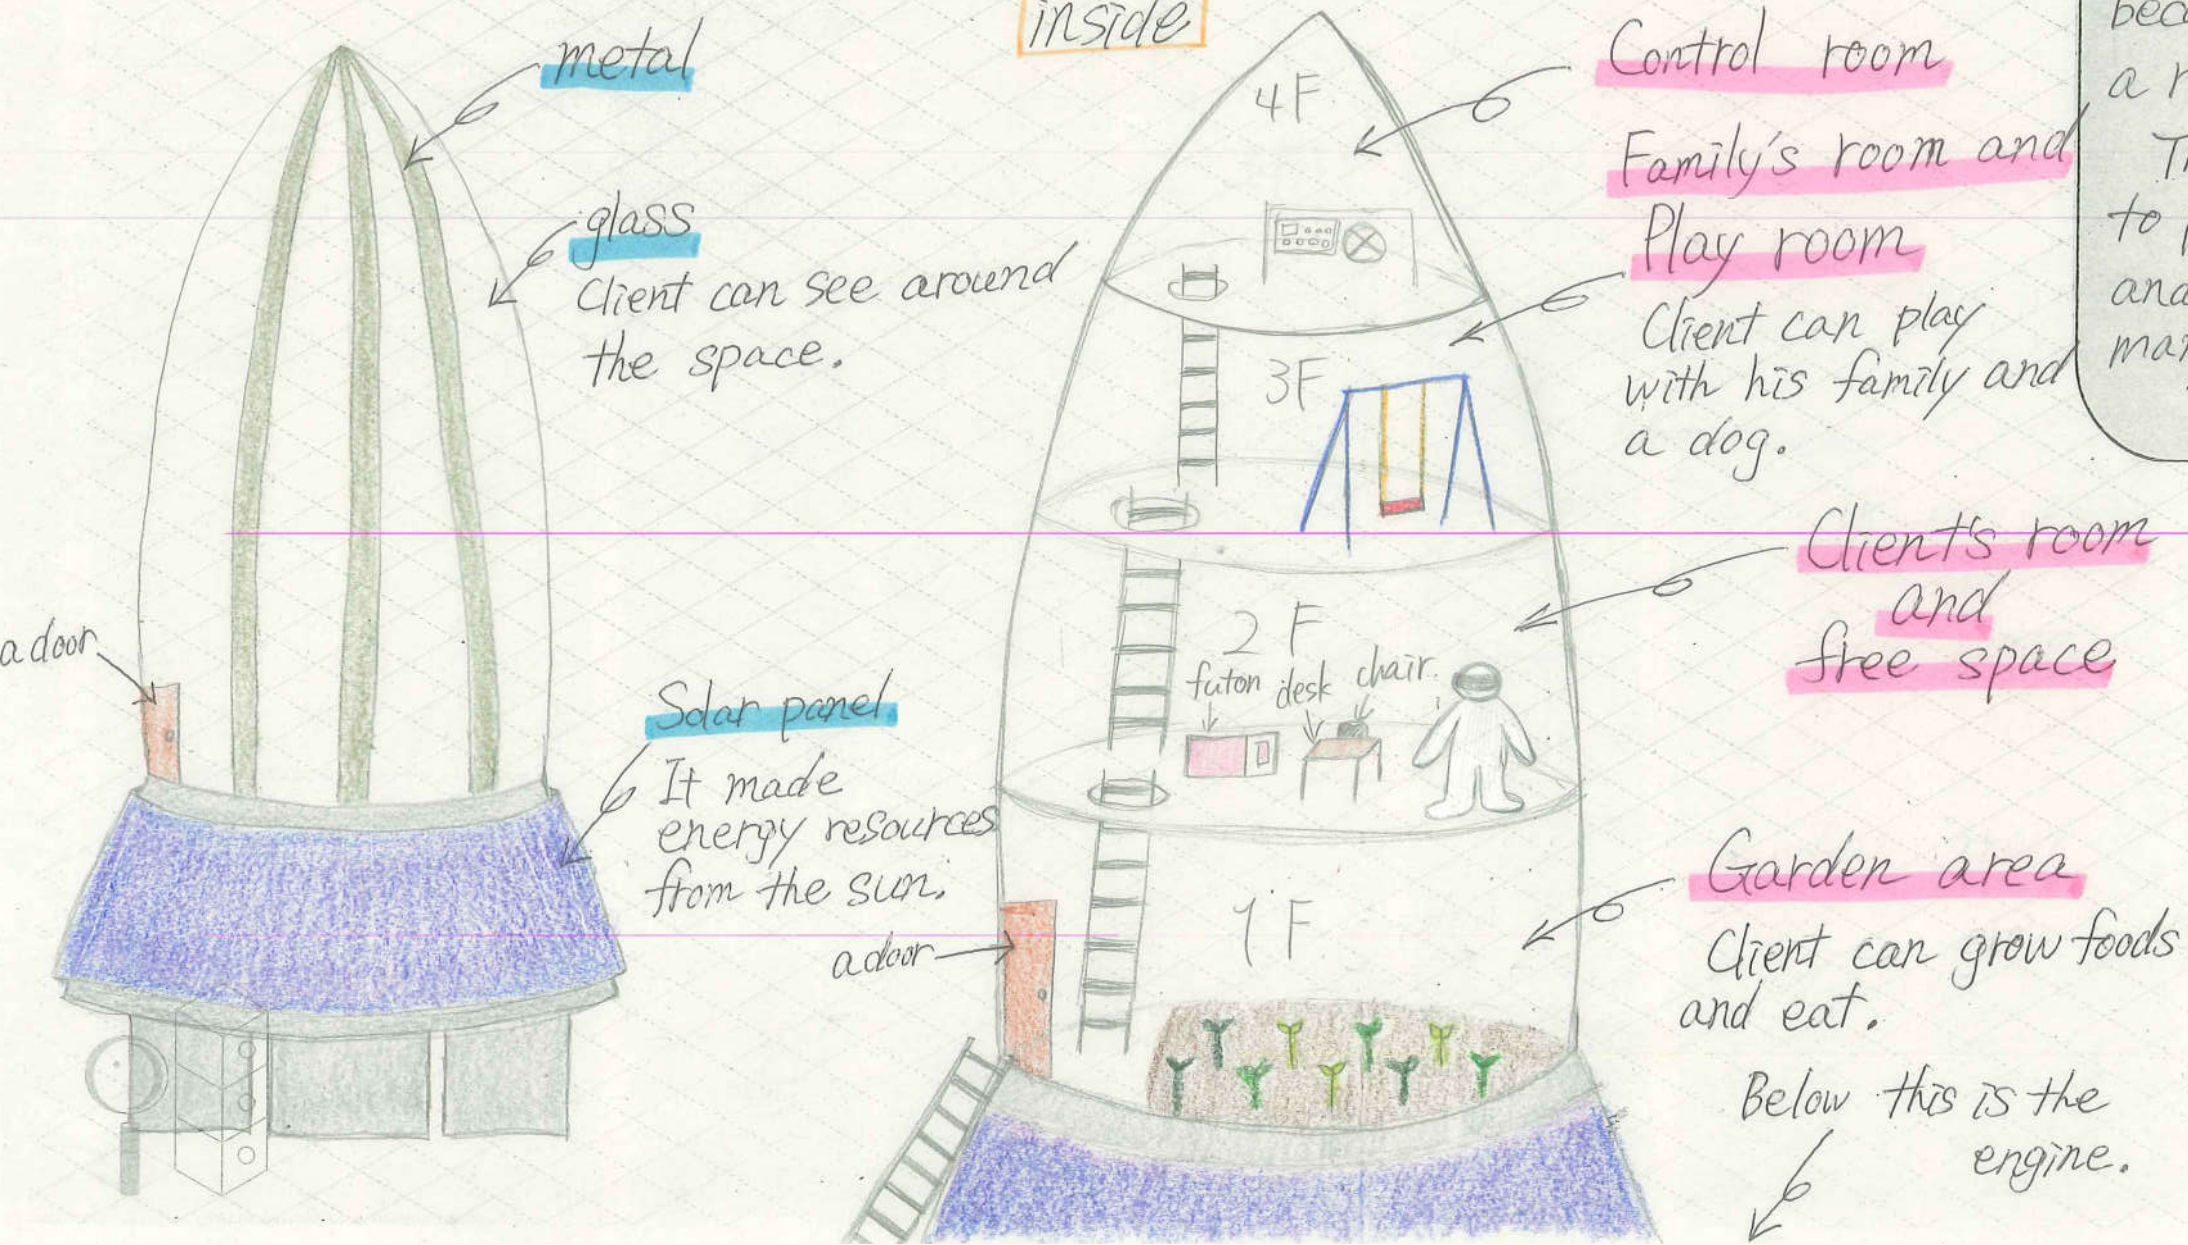 metal
glass
Client can see around
the space.
a door
Solar panel
It made
energy resources
from the sun.
a door
inside
4F
3F
2F
futon desk chair
1F
Control room
Family's room and
Play room
Client can play
with his family and
a dog.
Client's room
and
free space
Garden area
Client can grow foods
and eat.
Below this is the
engine.
a
to